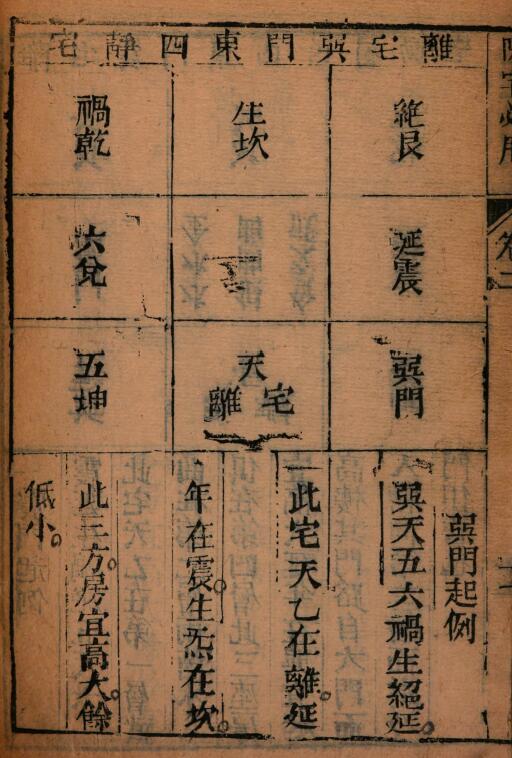 離宅巽門東四靜宅
絕艮
生坎
禍乾
延震
六兌
巽門
天
離宅
五坤
巽門起例
巽天五六禍生絕延
一此宅天乙在離延
年在震生炁在坎
此三方房宜高大餘
低小
卷二